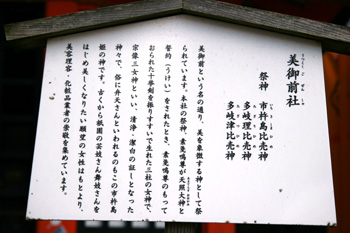 美御前社
うつくしごぜんしゃ
祭神 市杵島比売神
多岐理比売神
多岐津比売神
美御前という名の通り、美を象徴する神として祭
られています。本社の祭神、素戔嗚尊が天照大神と
誓約（うけい）をされたとき、素戔嗚尊のもって
おられた十拳剣を振りすすいで生れた三社の女神で、
宗像三女神といい、清浄・潔白の証しとなった
神々で、俗に弁天さんといわれるのもこの市杵島
姫の神です。古くから祇園の芸妓さん舞妓さんを
はじめ美しくなりたい願望の女性はもとより、
美容理容・化粧品業者の崇敬を集めています。